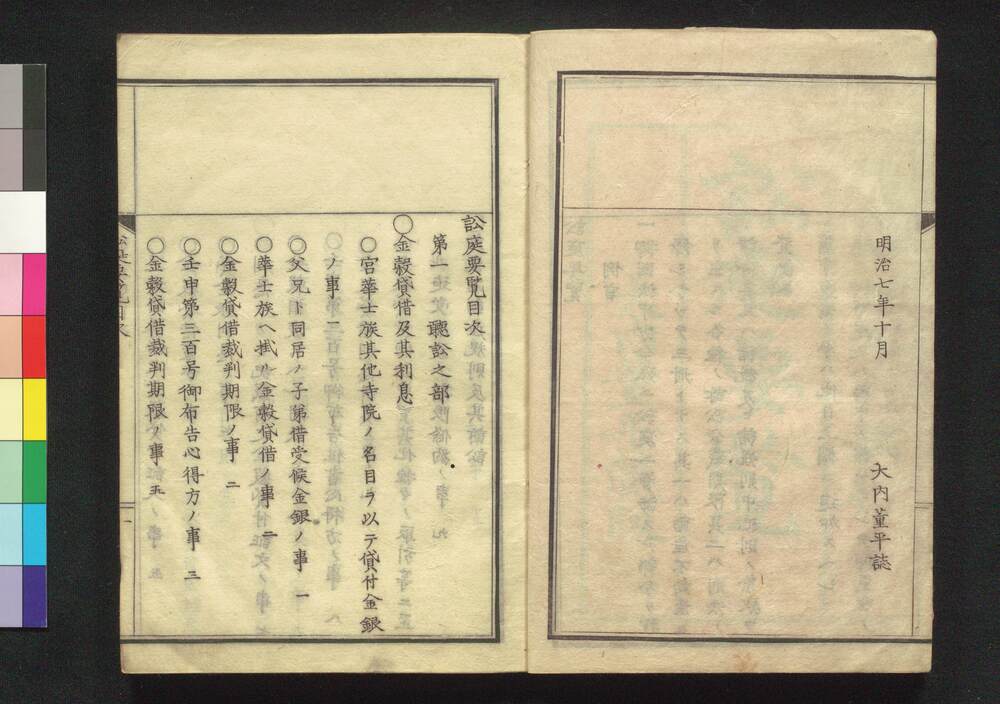 明治七年十月
大内董平誌
訟庭要覧目次
第一 聽訟之部
○金穀貸借及其利息
○官華士族其他寺院ノ名目ヲ以テ貸付金銀
ノ事
○父兄ト同居ノ子弟借受候金銀ノ事 一
○華士族ヘ掛ル金穀貸借ノ事 二
○金穀貸借裁判期限ノ事 二
○壬申第三百号御布告心得方ノ事 三
○金穀貸借裁判期限ノ事 五